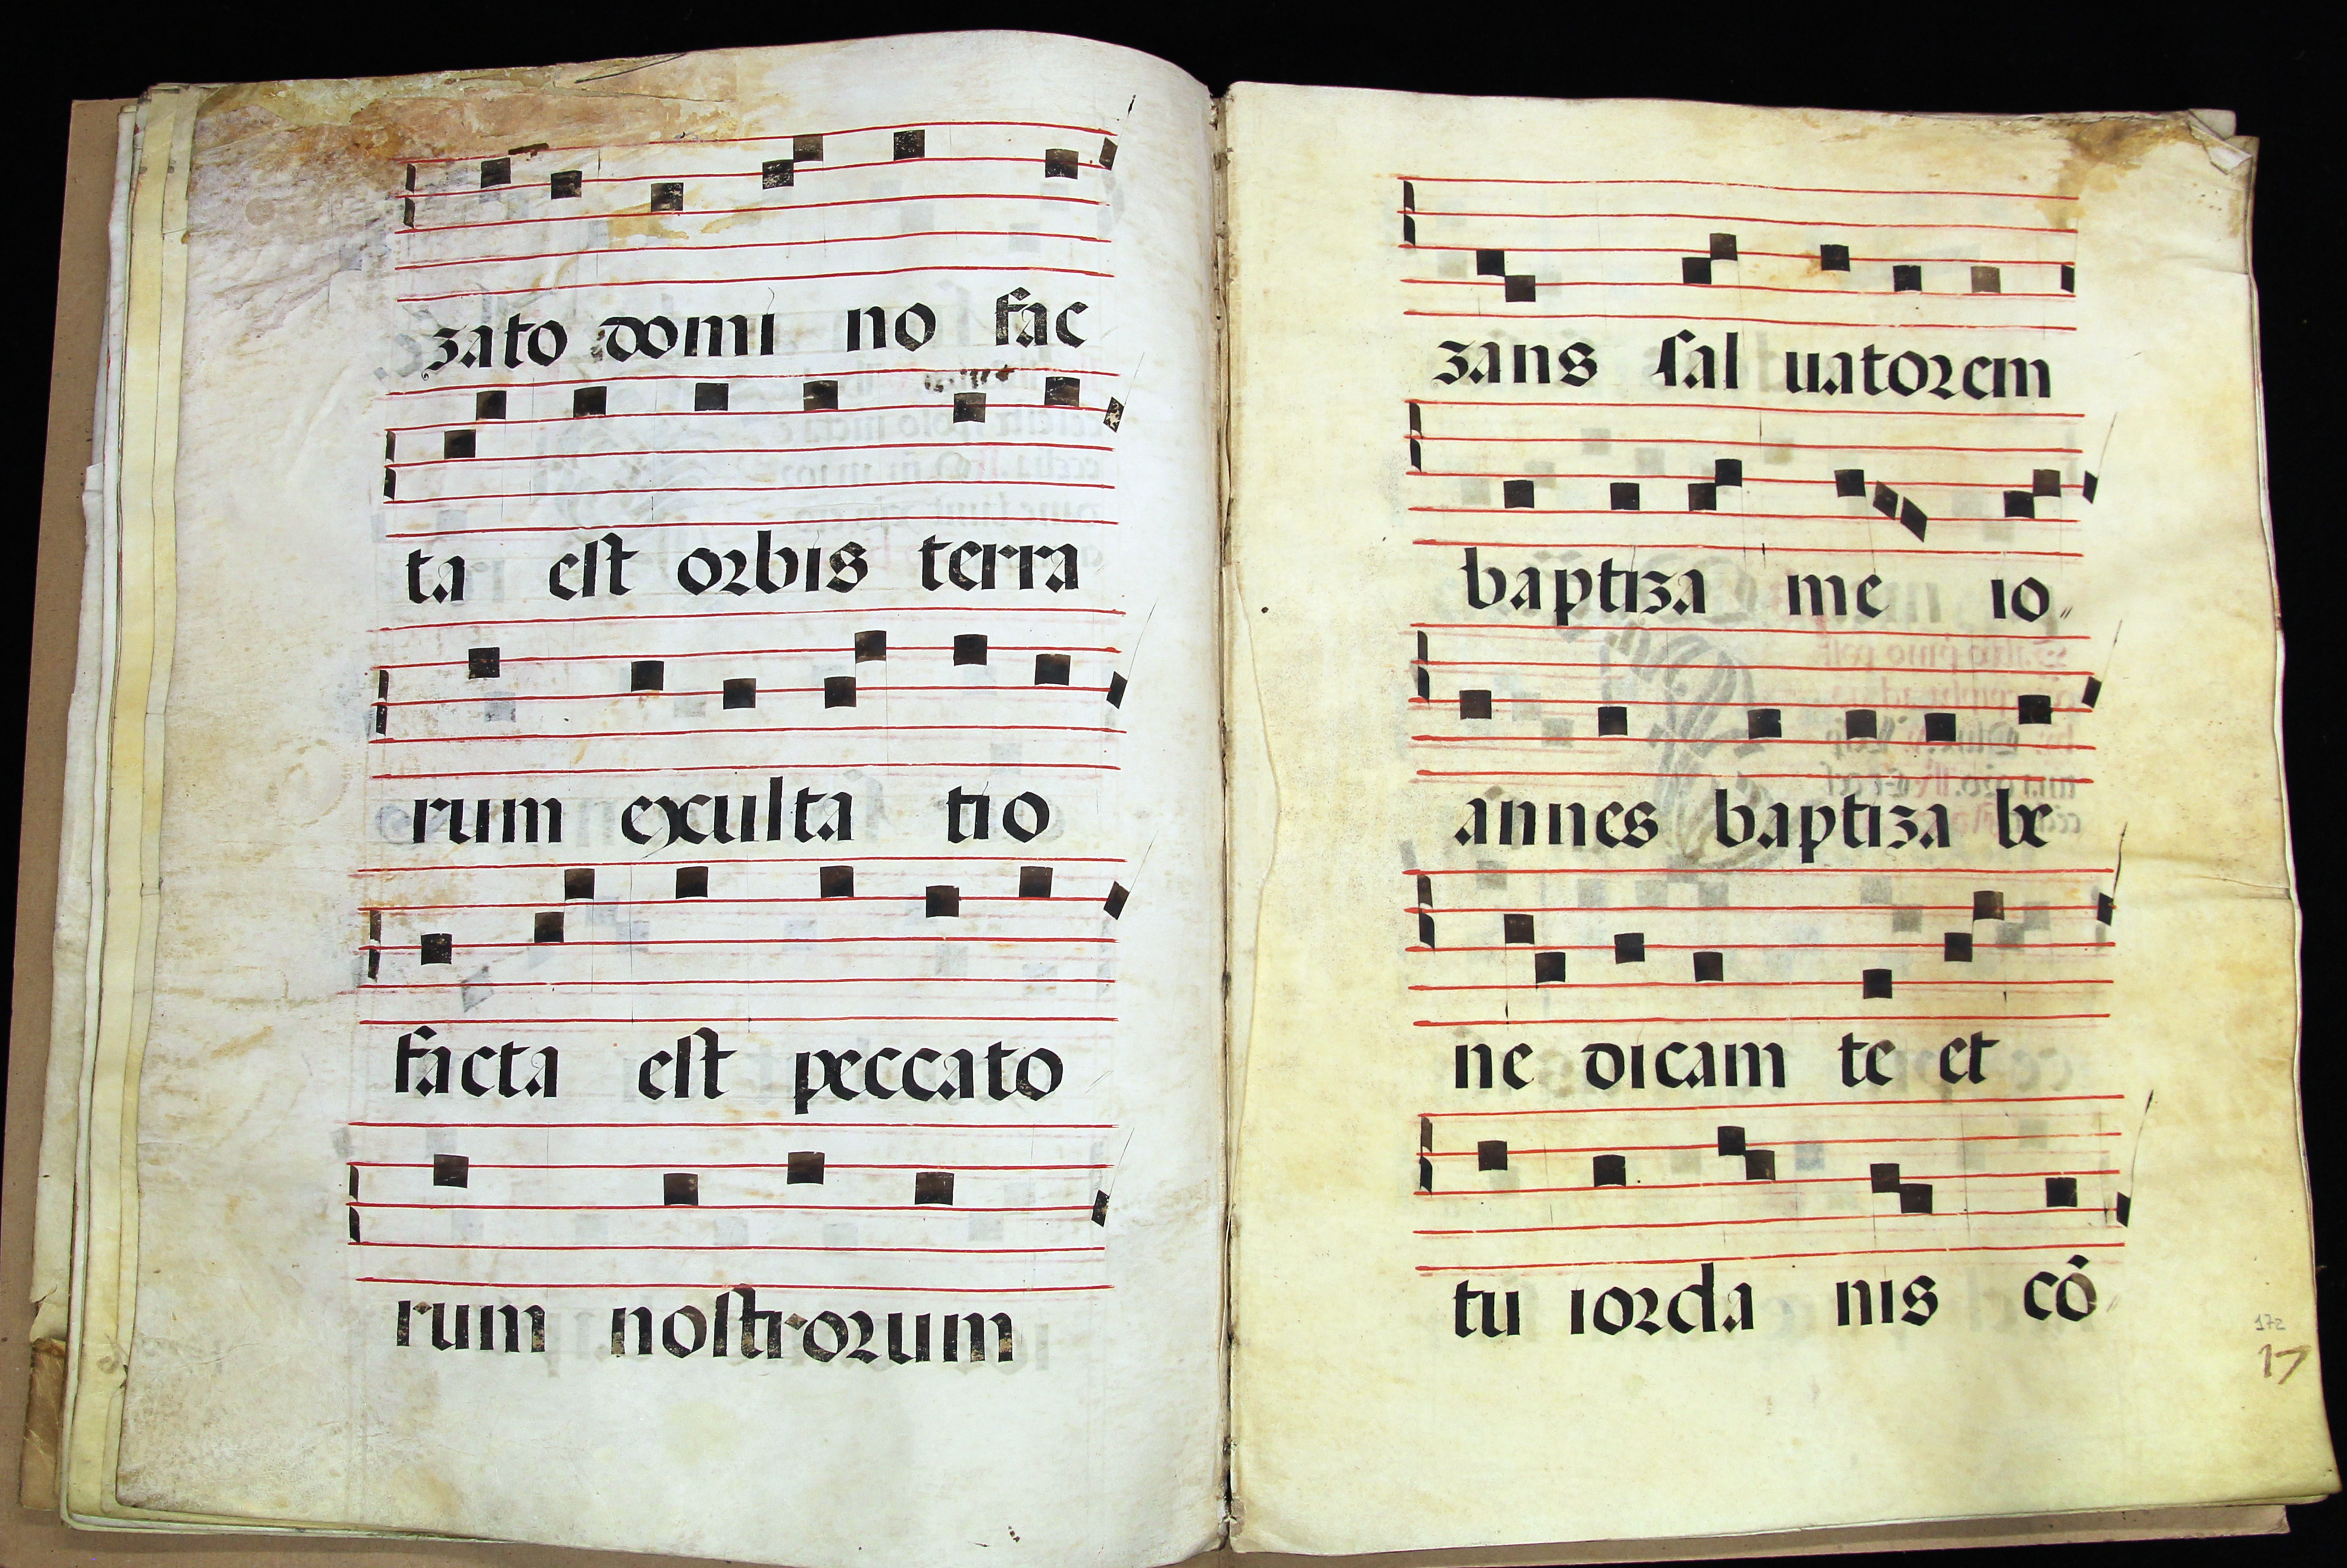 zato domi no fac
ta est orbis terra
rum exculta tio
facta est peccato
rum nostrorum
zans sal uatorem
baptiza me io
annes baptiza be
ne dicam te et
tu iorda nis cõ
172
17